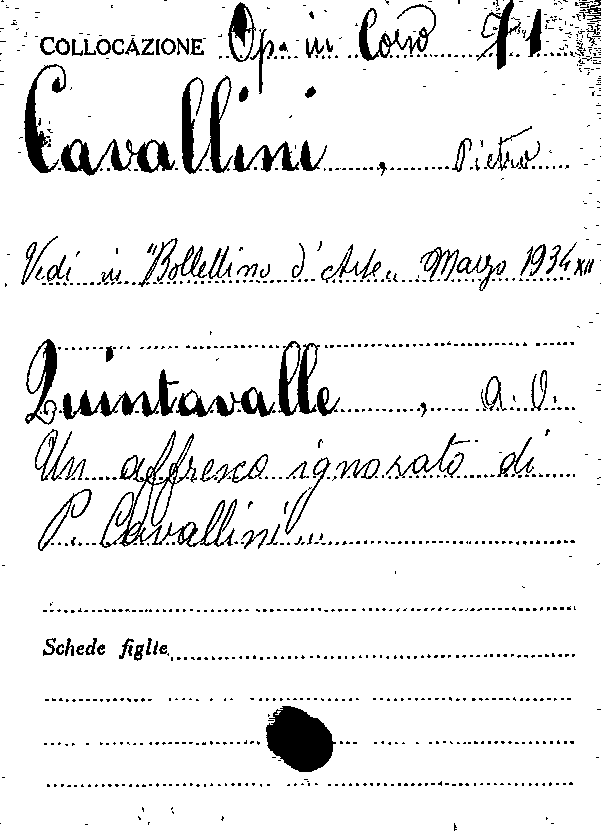 COLLOCAZIONE Op. in Corso 71
Cavallini, Pietro
Vedi in "Bollettino d'Arte„ Marzo 1934 XII
Quintavalle, A. O.
Un affresco ignorato di
P. Cavallini...
Schede figlie